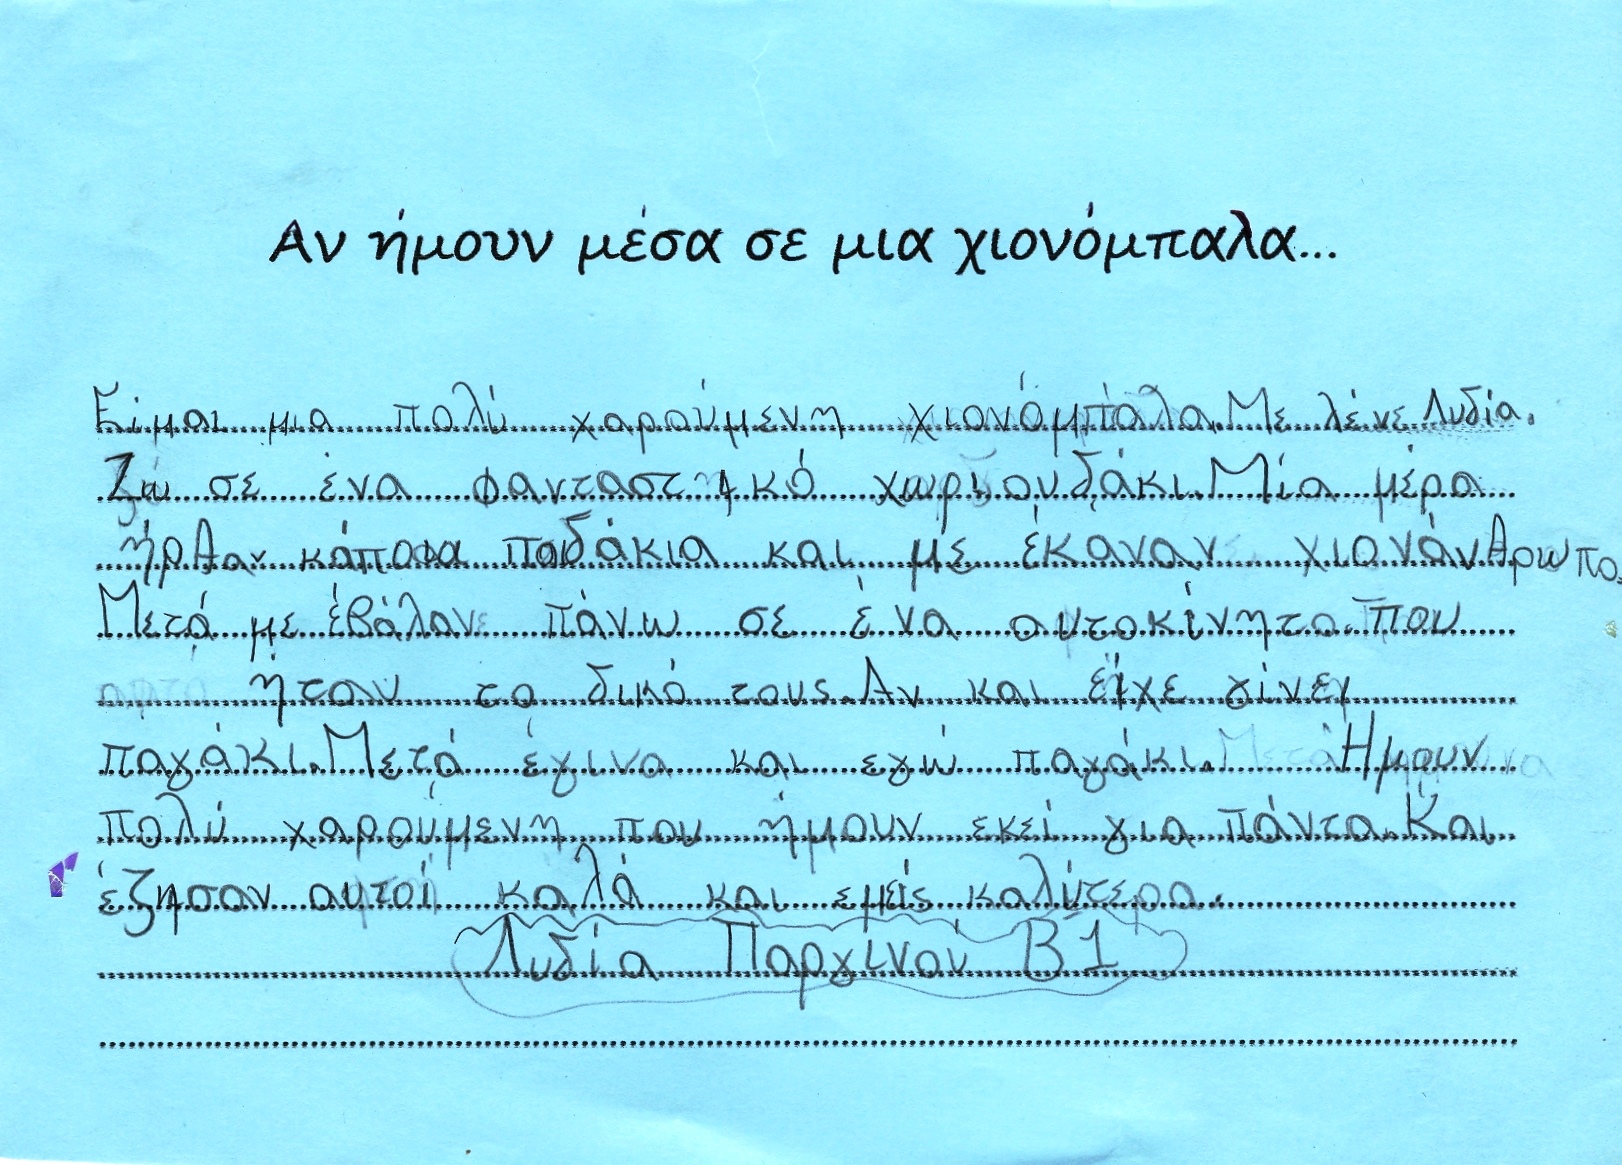 Αν ήμουν μέσα σε μια χιονόμπαλα...
Είμαι μια πολύ χαρούμενη χιονόμπαλα. Με λένε Λυδία.
Ζω σε ένα φανταστικό χωριουδάκι. Μία μέρα
ήρθαν κάποια παιδάκια και με έκαναν χιονάνθρωπο.
Μετά με έβάλαν πάνω σε ένα αυτοκίνητο που
ήταν το δικό τους. Αν και είχε γίνει
παγάκι. Μετά έγινα και εγώ παγάκι. Ήμουν
πολύ χαρούμενη που ήμουν εκεί για πάντα. Και
έζησαν αυτοί καλά και εμείς καλύτερα.
Λυδία Παργινού Β1